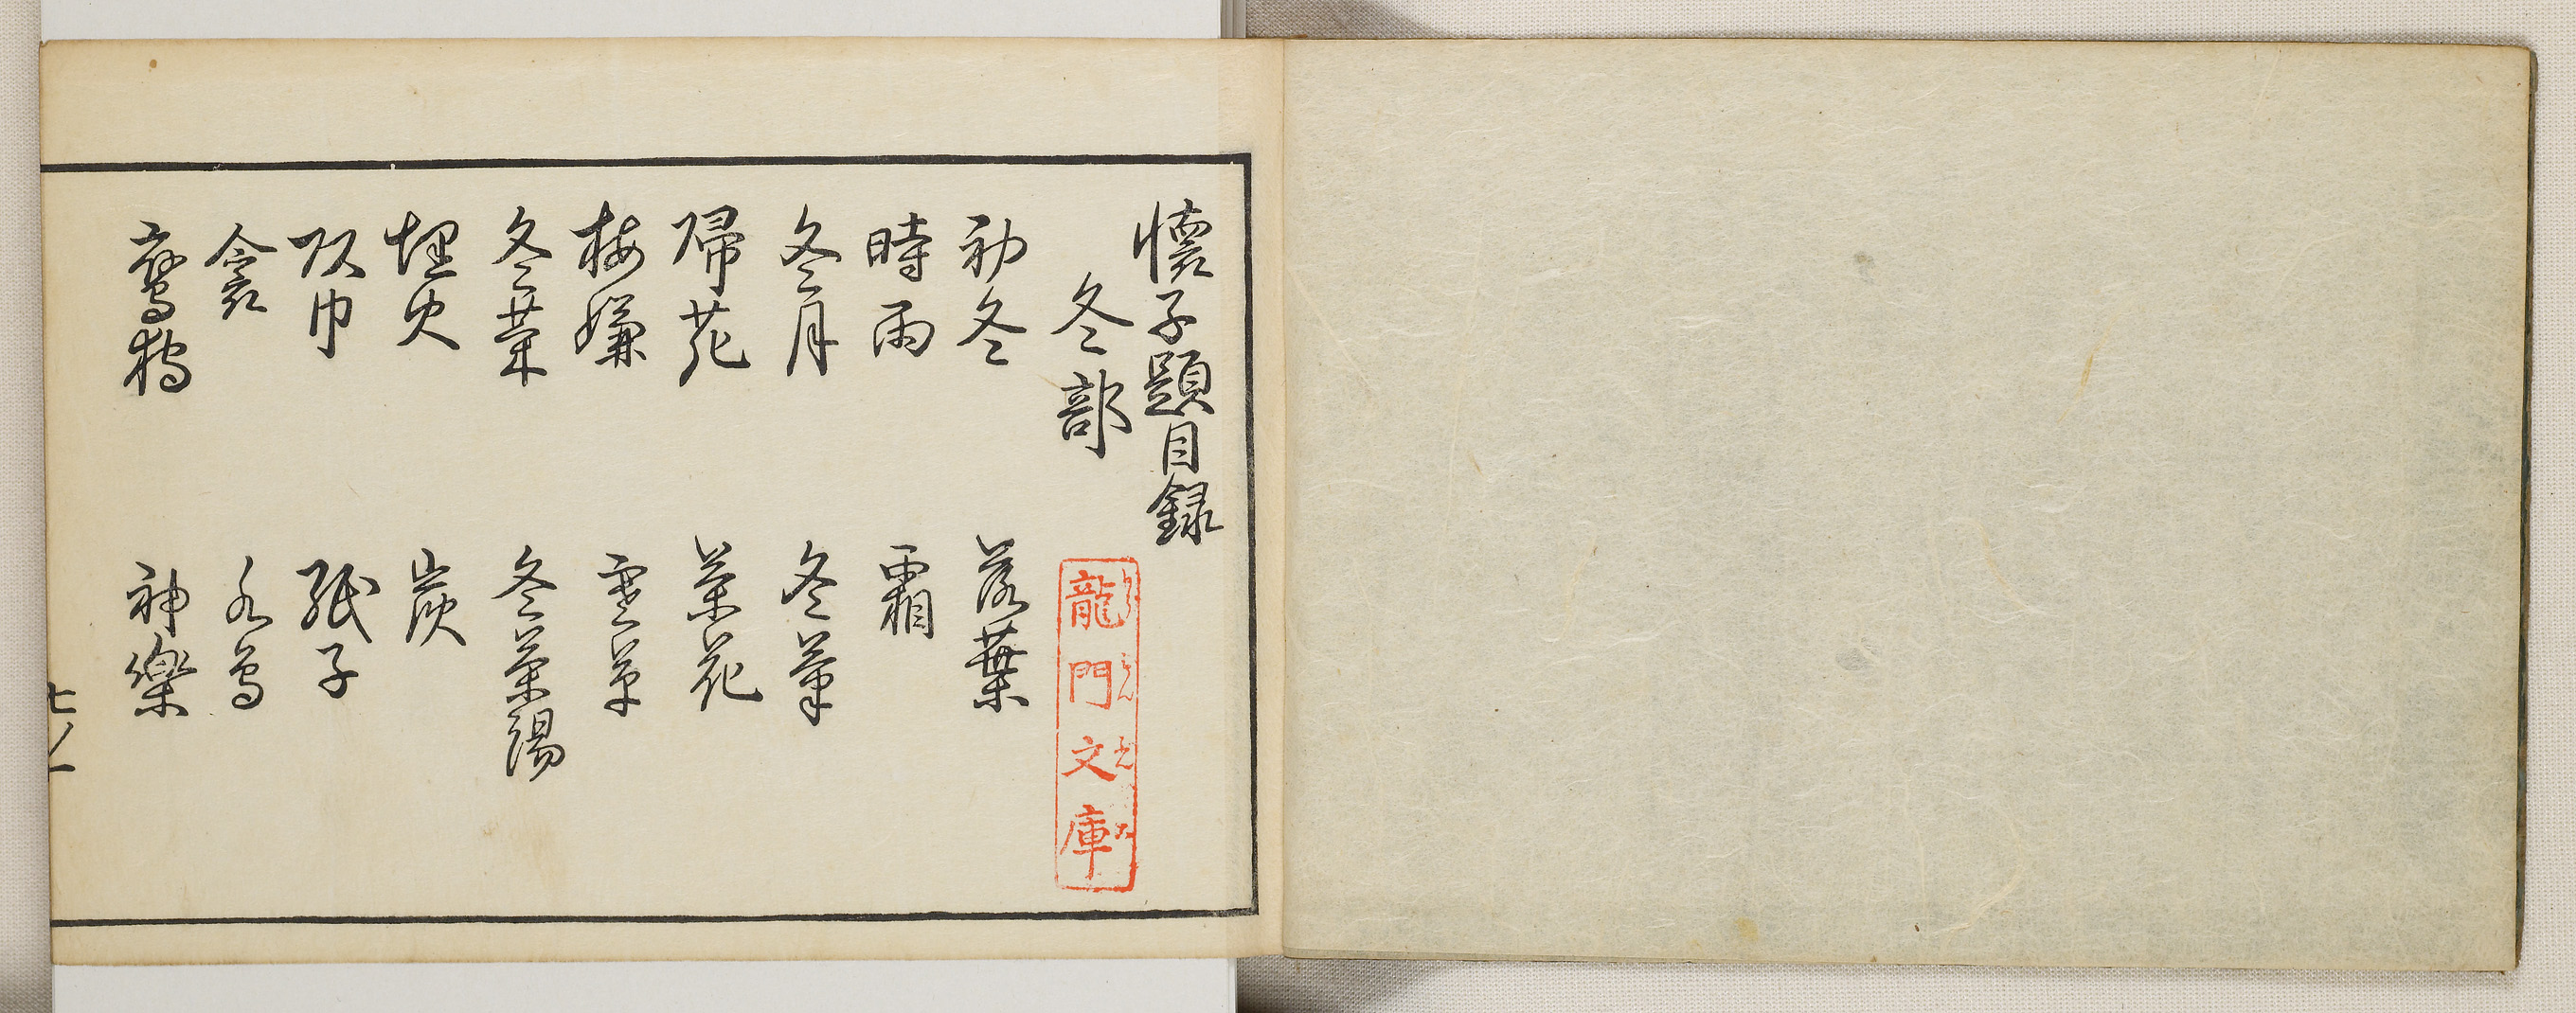 懐子題目録
冬部
龍門文庫
初冬 落葉
時雨 霜
冬月
帰花 茶花
梅嫌
埋火 炭
頭巾 紙子
衾 水鳥
鷹狩 神楽
七ノ一